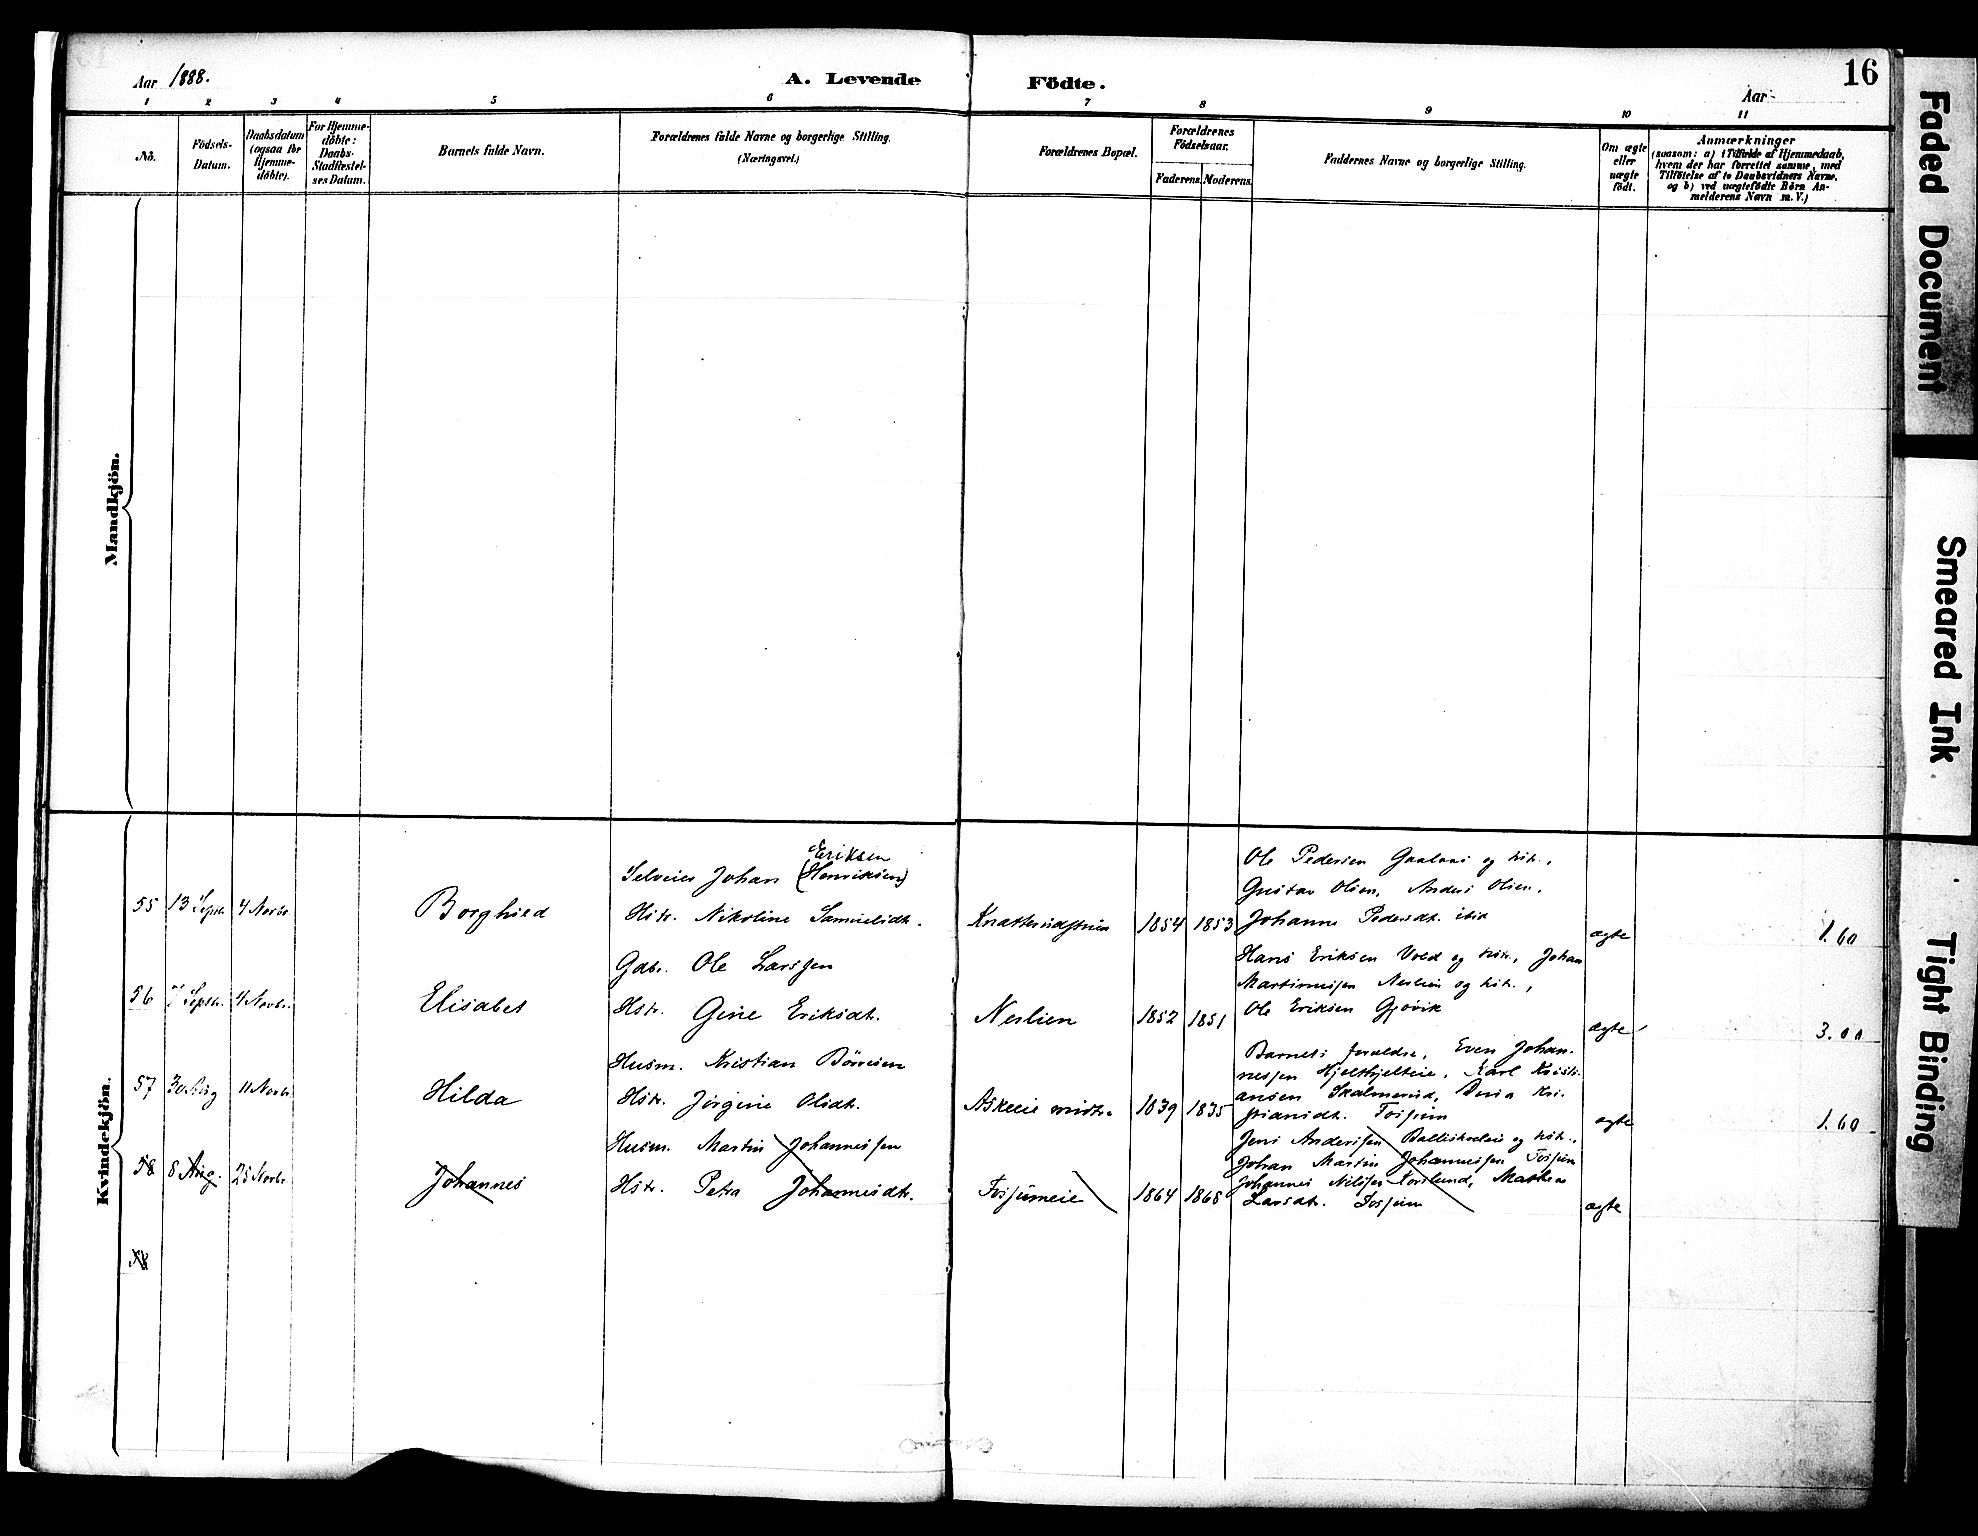 Aar 1888.
A. Levende Födte.
Aar
16
1 2 3 4 5 6 7 8 9 10 11
No.
Födsels-
Datum.
Daabsdatum
(ogsaa for
Hjemme-
döbte).
For Hjemme-
döbte:
Daabs-
Stadfæstel-
ses Datum.
Barnets fulde Navn.
Forældrenes fulde Navne og borgerlige Stilling.
(Næringsvei.)
Forældrenes Bopæl.
Forældrenes
Födselsaar.
Faderens. Moderens.
Faddernes Navne og borgerlige Stilling.
Om ægte
eller
uægte
födt.
Anmærkninger
(saasom: a) i Tilfælde af Hjemmedaab,
hvem der har forrettet samme, med
Tilföielse af to Daabsvidners Navne,
og b) ved uægtefödte Börn An-
melderens Navn m. V.)
Mandkjön.
Kvindekjön.
55 13 Septr. 4 Novbr.
Borghild
Eriksen
Selveier Johan (Henriksen)
Hstr. Nikoline Samuelsdtr.
1854 1853
Ole Pedersen Gaalaas og hstr.,
Gustav Olsen, Anders Olsen,
Johanne Pedersdtr. ibid
ægte
1.60
56 7 Septr. 4 Novbr.
Elisabet
Gdbr. Ole Larssen
Hstr. Gine Eriksdtr.
Neslien
1852 1851
Hans Eriksen Vold og hstr., Johan
Martinussen Neslien og hstr.,
Ole Eriksen Gjövik
ægte
3.00
57 30 Aug 11 Novbr.
Hilda
Husm. Kristian Börresen
Hstr. Jörgine Olsdtr.
Askeeie vestre
1839 1835
Barnets forældre, Even Johan-
nessen Hjelthjelteie, Karl Kristi-
ansen Skalmerud, Kri-
stiansdtr. Fossum
ægte
1.60
58 8 Aug. 25 Novbr.
Johannes
Husm. Martin Johannessen
Hstr. Petra Johannesdtr.
Fossumeie
1864 1868
Jens Anderssen og hstr.,
Johan Martin Johannessen Fossum
Johannes Nilssen Korslund, Mathea
Larsdtr. Fossum
ægte
58
Faded Document
Smeared Ink
Tight Binding